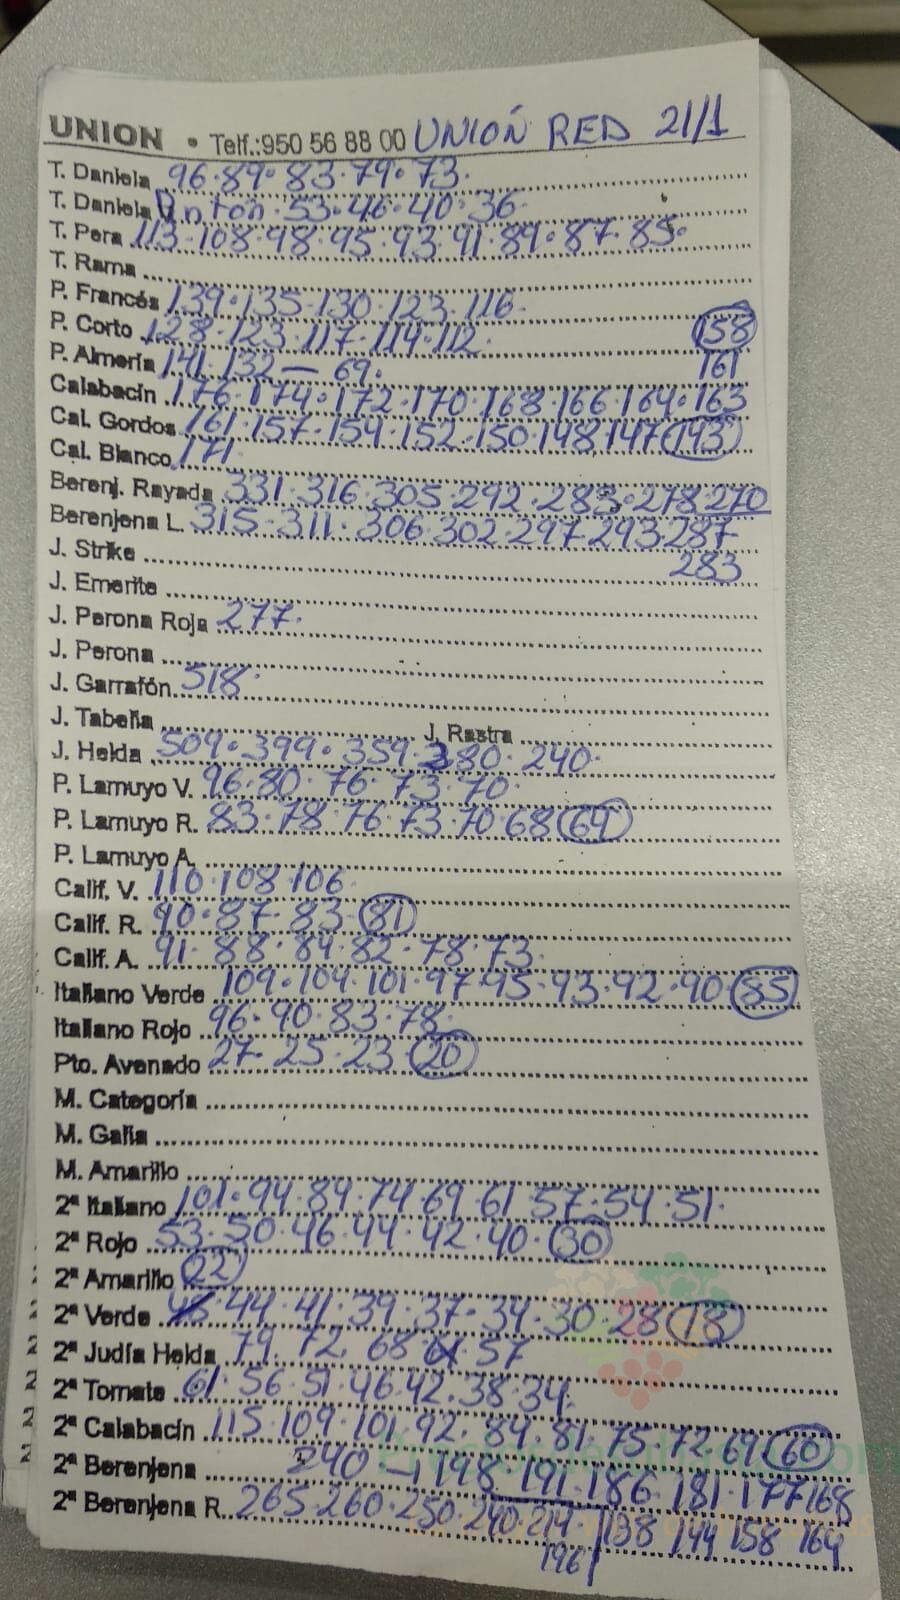 UNION • Telf.:950 56 88 00 UNIÓN RED 21/1
T. Daniela 96·89·83·79·73·
T. Daniela Pinton·53·46·40·36·
T. Pera 113·108·98·95·93·91·89·87·85·
T. Rama
P. Francés 139·135·130·123·116·
P. Corto 128·123·117·114·112· 158
P. Almería 141·132— 69· 161
Calabacín 176·174·172·170·168·166·164·163
Cal. Gordos 161·157·154·152·150·148·147·143
Cal. Blanco 171·
Berenj. Rayada 331·316·305·292·283·278·270
Berenjena L. 315·311·306·302·297·293·287
J. Strike 283
J. Emerite
J. Perona Roja 277·
J. Perona
J. Garrafón 518·
J. Tabella J. Rastra
J. Helda 509·399·359·380·240·
P. Lamuyo V. 96·80·76·73·70·
P. Lamuyo R. 83·78·76·73·70·68 64
P. Lamuyo A.
Calif. V. 110·108·106·
Calif. R. 90·87·83·81
Calif. A. 91·88·84·82·78·73·
Italiano Verde 109·104·101·97·95·93·92·90·85
Italiano Rojo 96·90·83·78·
Pto. Avenado 27·25·23·20
M. Categoría
M. Galia
M. Amarillo
2ª Italiano 101·94·84·74·69·61·57·54·51·
2ª Rojo 53·50·46·44·42·40·30
2ª Amarillo 22
2ª Verde 44·41·39·37·34·30·28 18
2ª Judía Helda 79·72·68 57
2ª Tomate 61·56·51·46·42·38·34·
2ª Calabacín 115·109·101·92·84·81·75·72·69 60
2ª Berenjena 240 — 198·191·186·181·177 168
2ª Berenjena R. 265·260·250·240·214 138 144 158 164
196